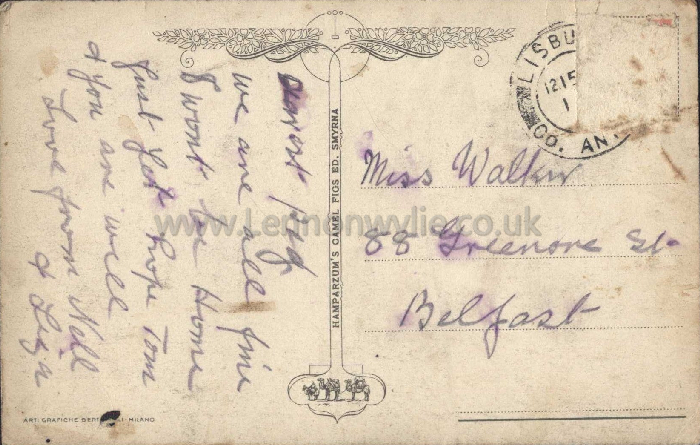 Dearest Peg
we are all fine
& wont be Home
Just yet hope Tom
& you are well
Love from Nell
&
HAMPARZUM'S CAMEL FIGS ED. SMYRNA
LISBU
1215
1
CO. AN
Miss Walker
88 Greenore St.
Belfast
ART. GRAFICHE MILANO
www.Lennonwylie.co.uk